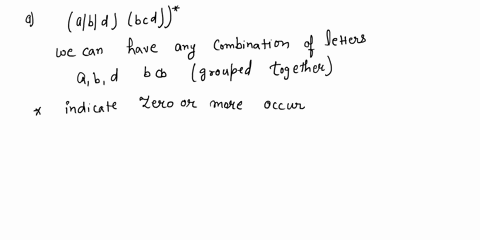 a) (a/b/d) (bcd))*
we can have any combination of letters
a, b, d bcb (grouped together)
* indicate zero or more occur